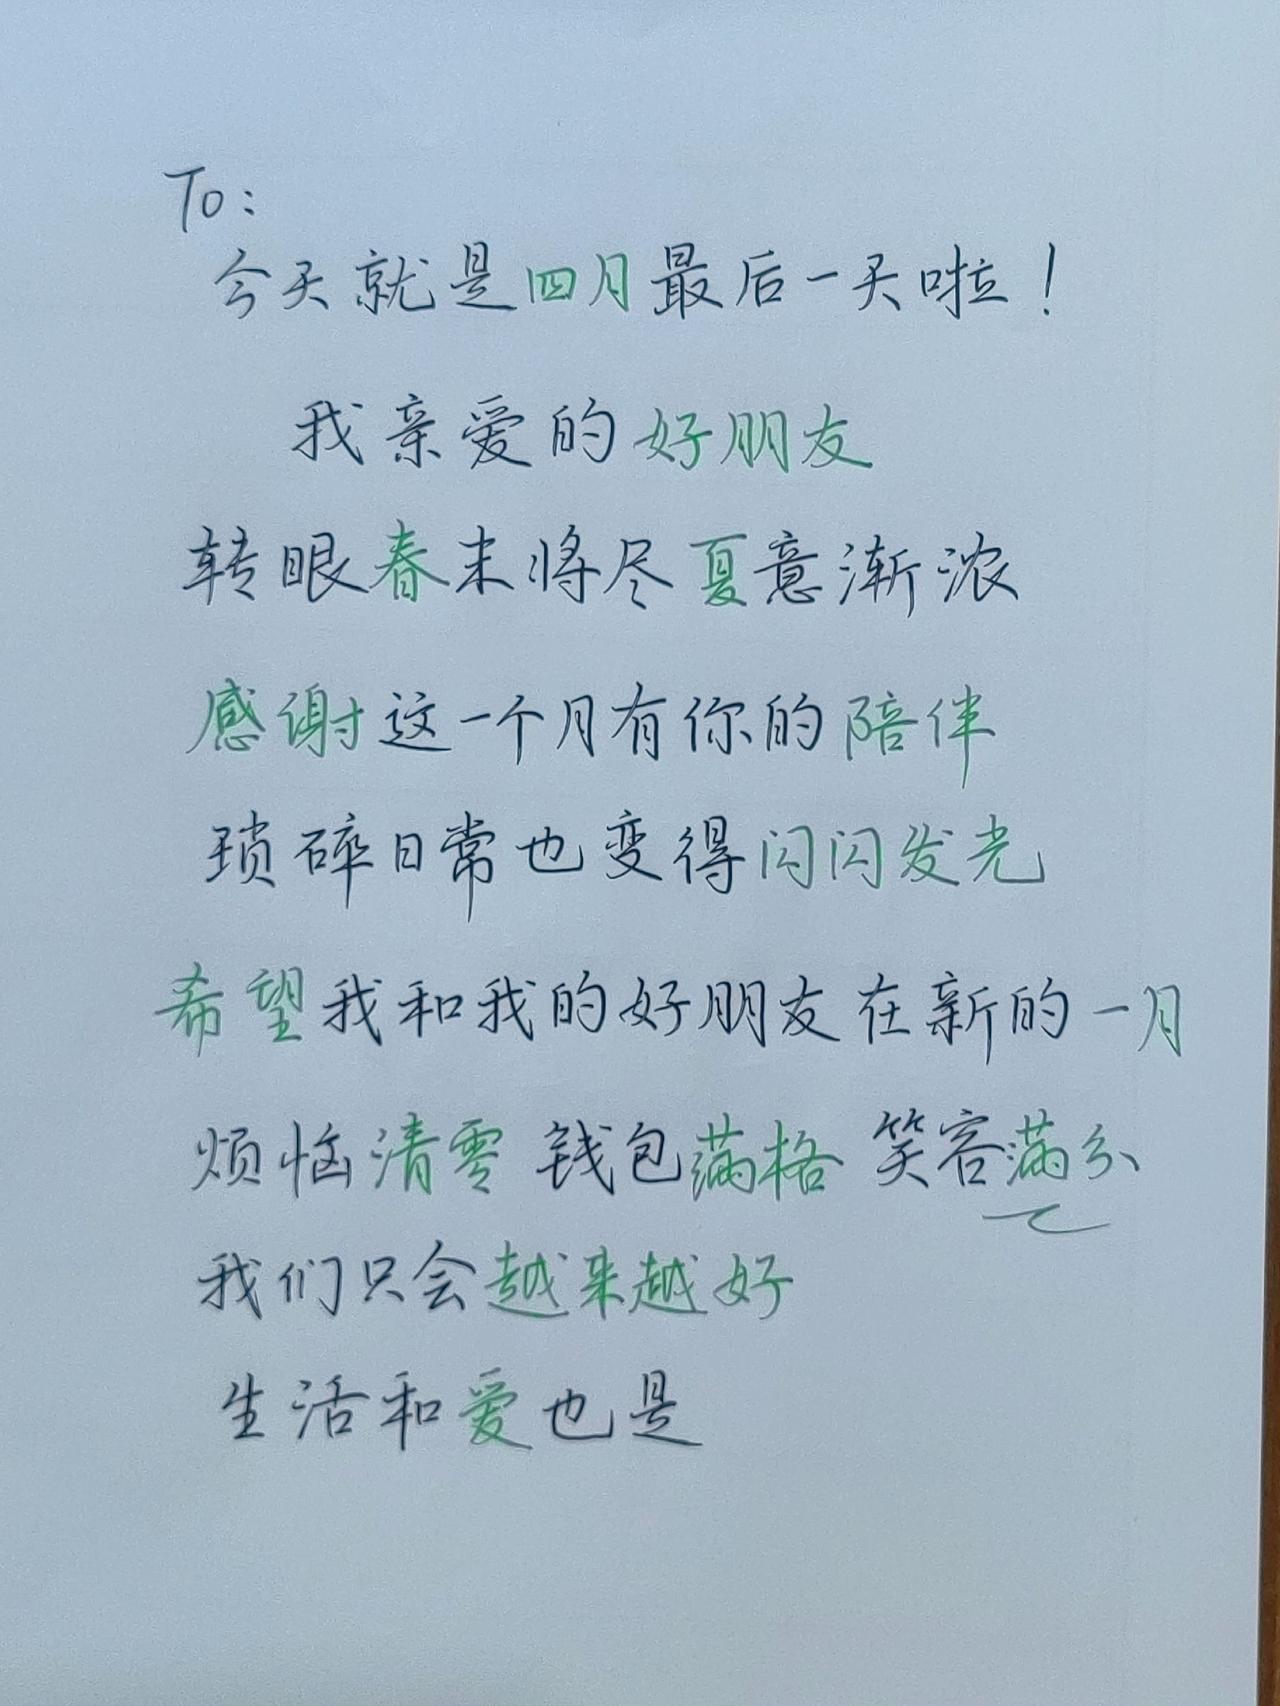 To:
今天就是四月最后一天啦！
我亲爱的好朋友
转眼春末将尽夏意渐浓
感谢这一个月有你的陪伴
琐碎日常也变得闪闪发光
希望我和我的好朋友在新的一月
烦恼清零 钱包满格 笑容满分
我们只会越来越好
生活和爱也是